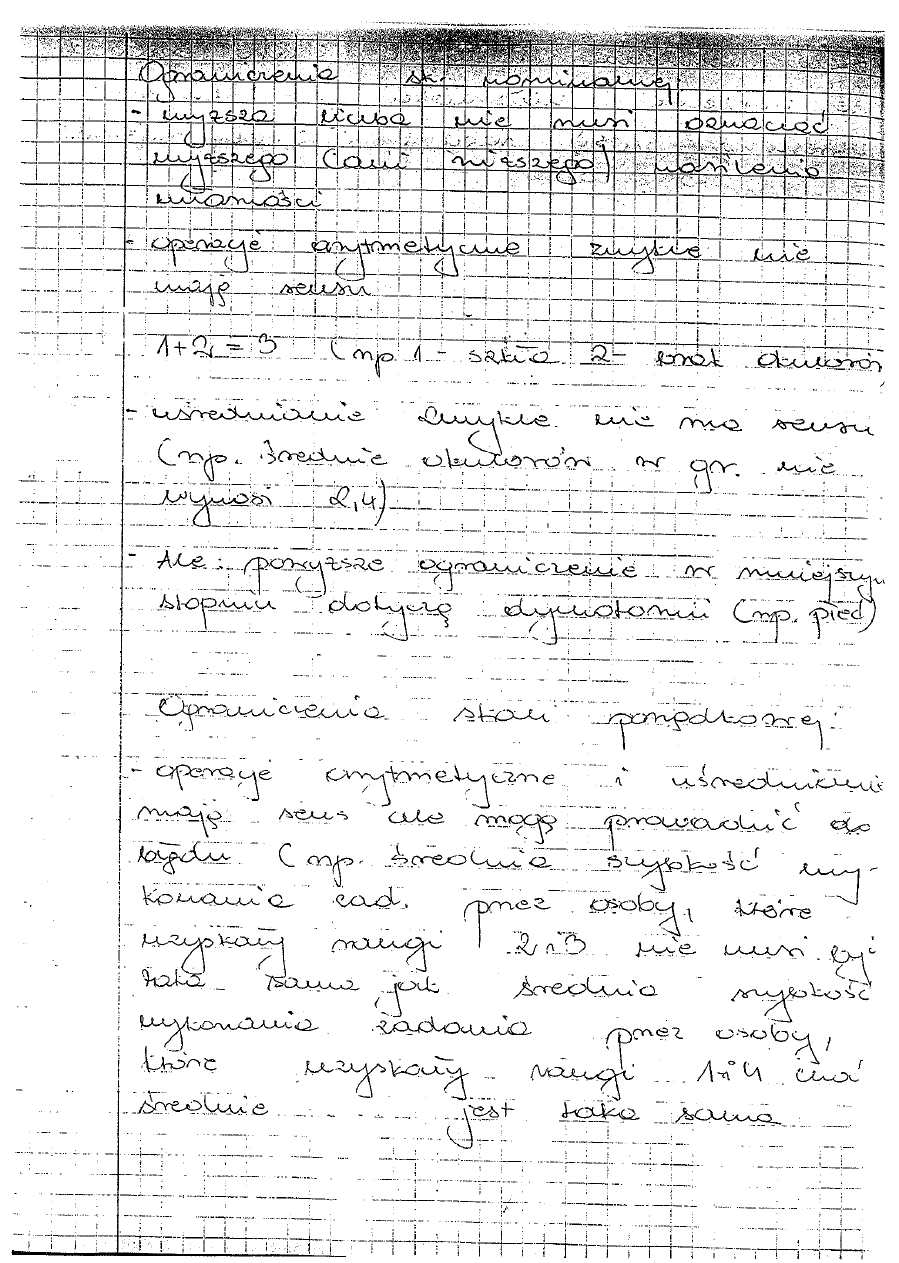 Ograniczenia sk. nominalnej:
- wyższa liczba nie musi oznaczać
wyższego (ani niższego) nasilenia
własności
- operacje arytmetyczne zwykle nie
mają sensu
1+2=3 (np 1- szkła 2- brak okularów
- uśrednianie zwykle nie ma sensu
(np. średnie okularów w gr. nie
wynosi 2,4)
- Ale: powyższe ograniczenie w mniejszym
stopniu dotyczą dychotomii (np. płeć)
Ograniczenia skali porządkowej:
- operacje arytmetyczne i uśrednianie
mają sens ale mogą prowadzić do
błędu (np. średnia szybkość wy-
konania zad. przez osoby, które
uzyskały rangi 2 i 3 nie musi być
taka sama jak średnia szybkość
wykonania zadania przez osoby,
które uzyskały rangi 1 i 4 choć
średnie jest taka sama